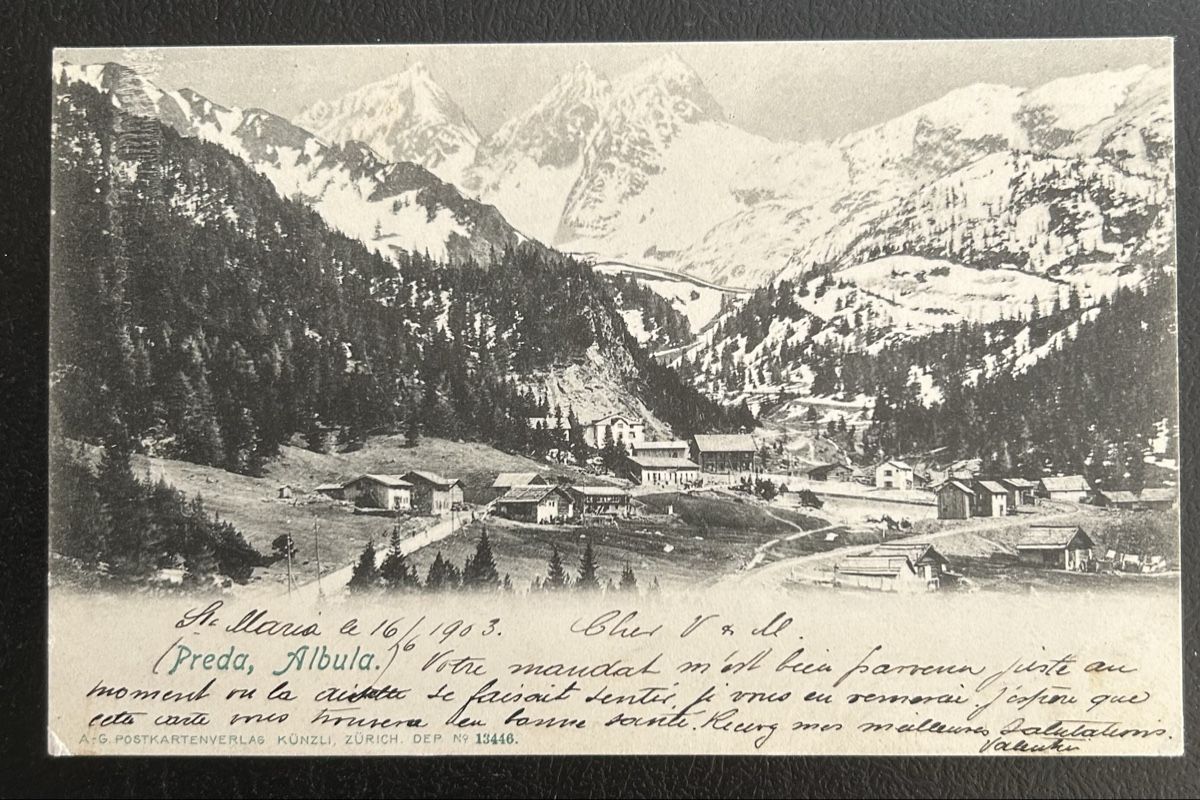 Ste Maria le 16/6 1903. Cher V & M.
(Preda, Albula.) Votre mandat m'est bien parvenu juste au
moment ou la disette se faisait sentir, je vous en remercie. J'espère que
cette carte vous trouvera en bonne santé. Recevez mes meilleures Salutations.
Valentin
A-G. POSTKARTENVERLAG KÜNZLI, ZÜRICH. DEP. No 13446.